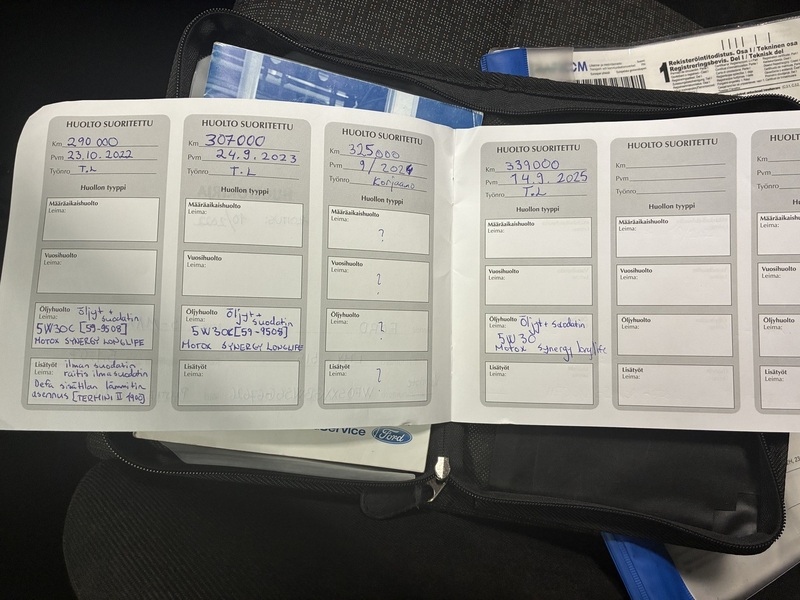 CM
1 Rekisteröintitodistus. Osa I / Tekninen osa
Registreringsbevis. Del I / Teknisk del
HUOLTO SUORITETTU
Km 290 000
Pvm 23.10.2022
Työnro T.L
Huollon tyyppi
Määräaikaishuolto
Leima:
Vuosihuolto
Leima:
Öljyhuolto öljyt +
Leima: suodatin
5W30C [59-9508]
MOTOX SYNERGY LONGLIFE
Lisätyöt ilman suodatin
Leima: raitis ilmasuodatin
Defa sisätilan lämmitin
asennus [TERMINI II 1400]
HUOLTO SUORITETTU
Km 307000
Pvm 24.9.2023
Työnro T.L
Huollon tyyppi
Määräaikaishuolto
Leima:
Vuosihuolto
Leima:
Öljyhuolto Öljyt +
Leima: suodatin
5W30C [59-9508]
MOTOX SYNERGY LONGLIFE
Lisätyöt
Leima:
HUOLTO SUORITETTU
Km 325000
Pvm 9/2024
Työnro Korjaamo
Huollon tyyppi
Määräaikaishuolto
Leima:
?
Vuosihuolto
Leima:
?
Öljyhuolto
Leima:
?
Lisätyöt
Leima:
?
HUOLTO SUORITETTU
Km 339000
Pvm 14.9.2025
Työnro T.L
Huollon tyyppi
Määräaikaishuolto
Leima:
Vuosihuolto
Leima:
Öljyhuolto Öljyt + suodatin
Leima: 5W30
Motox synergy longlife
Lisätyöt
Leima:
HUOLTO SUORITETTU
Km
Pvm
Työnro
Huollon tyyppi
Määräaikaishuolto
Leima:
Vuosihuolto
Leima:
Öljyhuolto
Leima:
Lisätyöt
Leima:
HUOLTO
Km
Pvm
Työnro
Määräaikaishuolto
Leima:
Vuosihuolto
Leima:
Öljyhuolto
Leima:
Lisätyöt
Leima:
service Ford